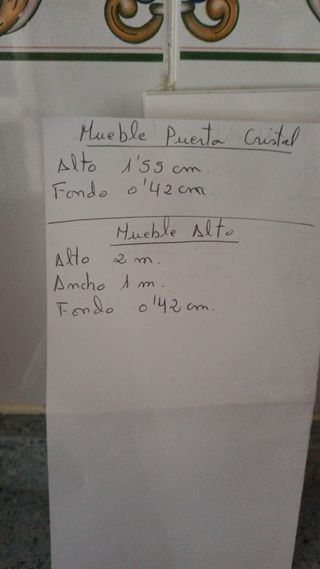 Mueble Puerta Cristal
Alto 1'55 cm.
Fondo 0'42 cm.
Mueble Alto
Alto 2 m.
Ancho 1 m.
Fondo 0'42 cm.